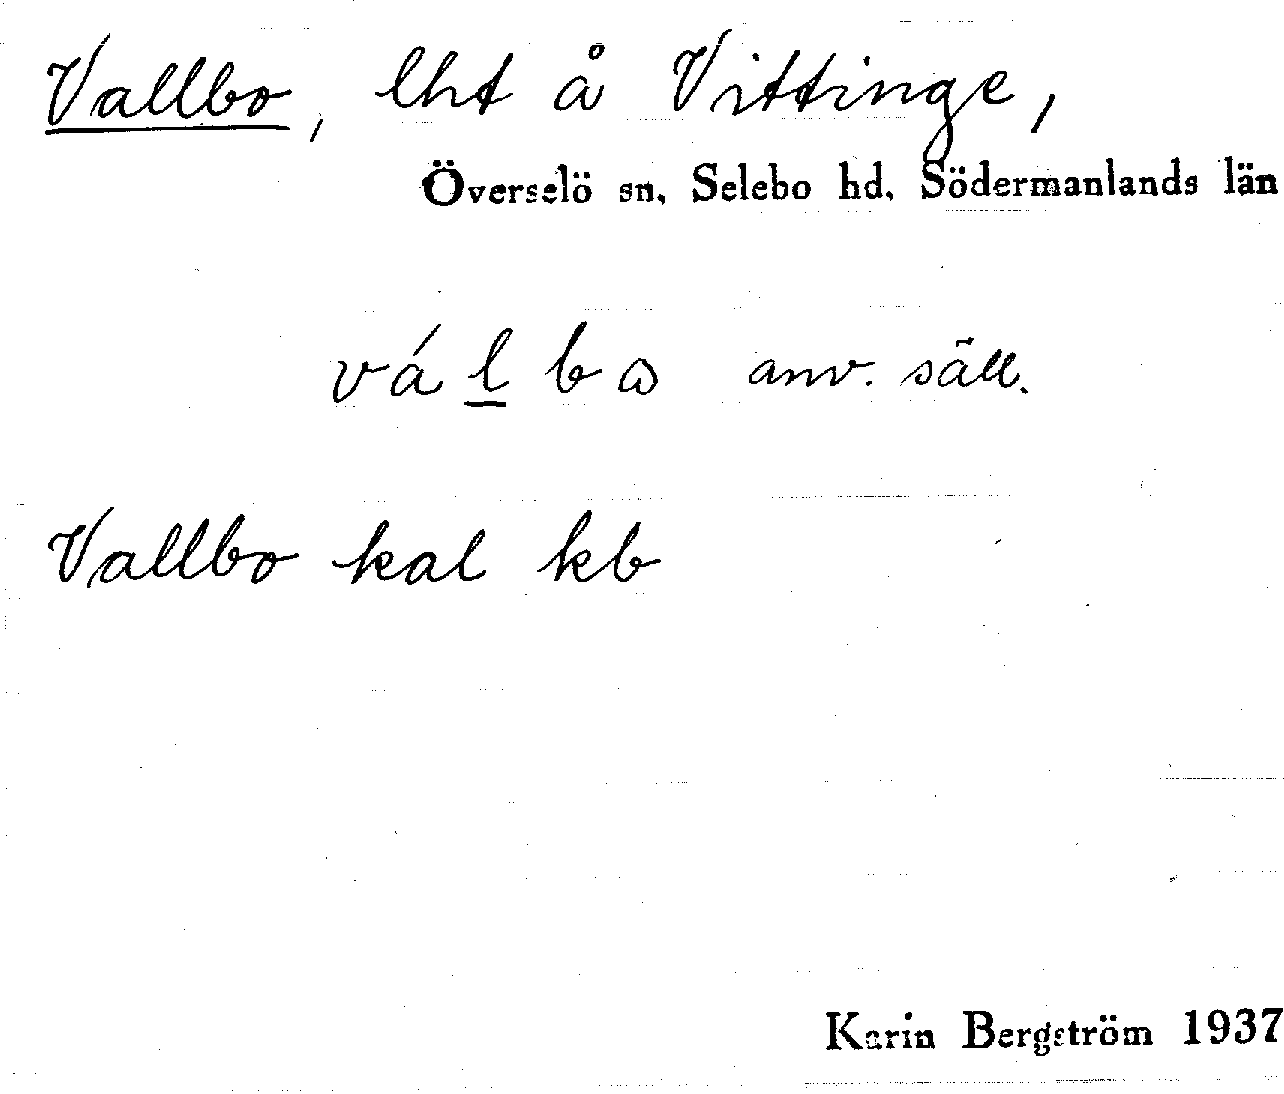 Vallbo, lht å Vittinge,
Överselö sn, Selebo hd, Södermanlands län
vá l b ω anv. säll.
Vallbo kal kb
Karin Bergström 1937